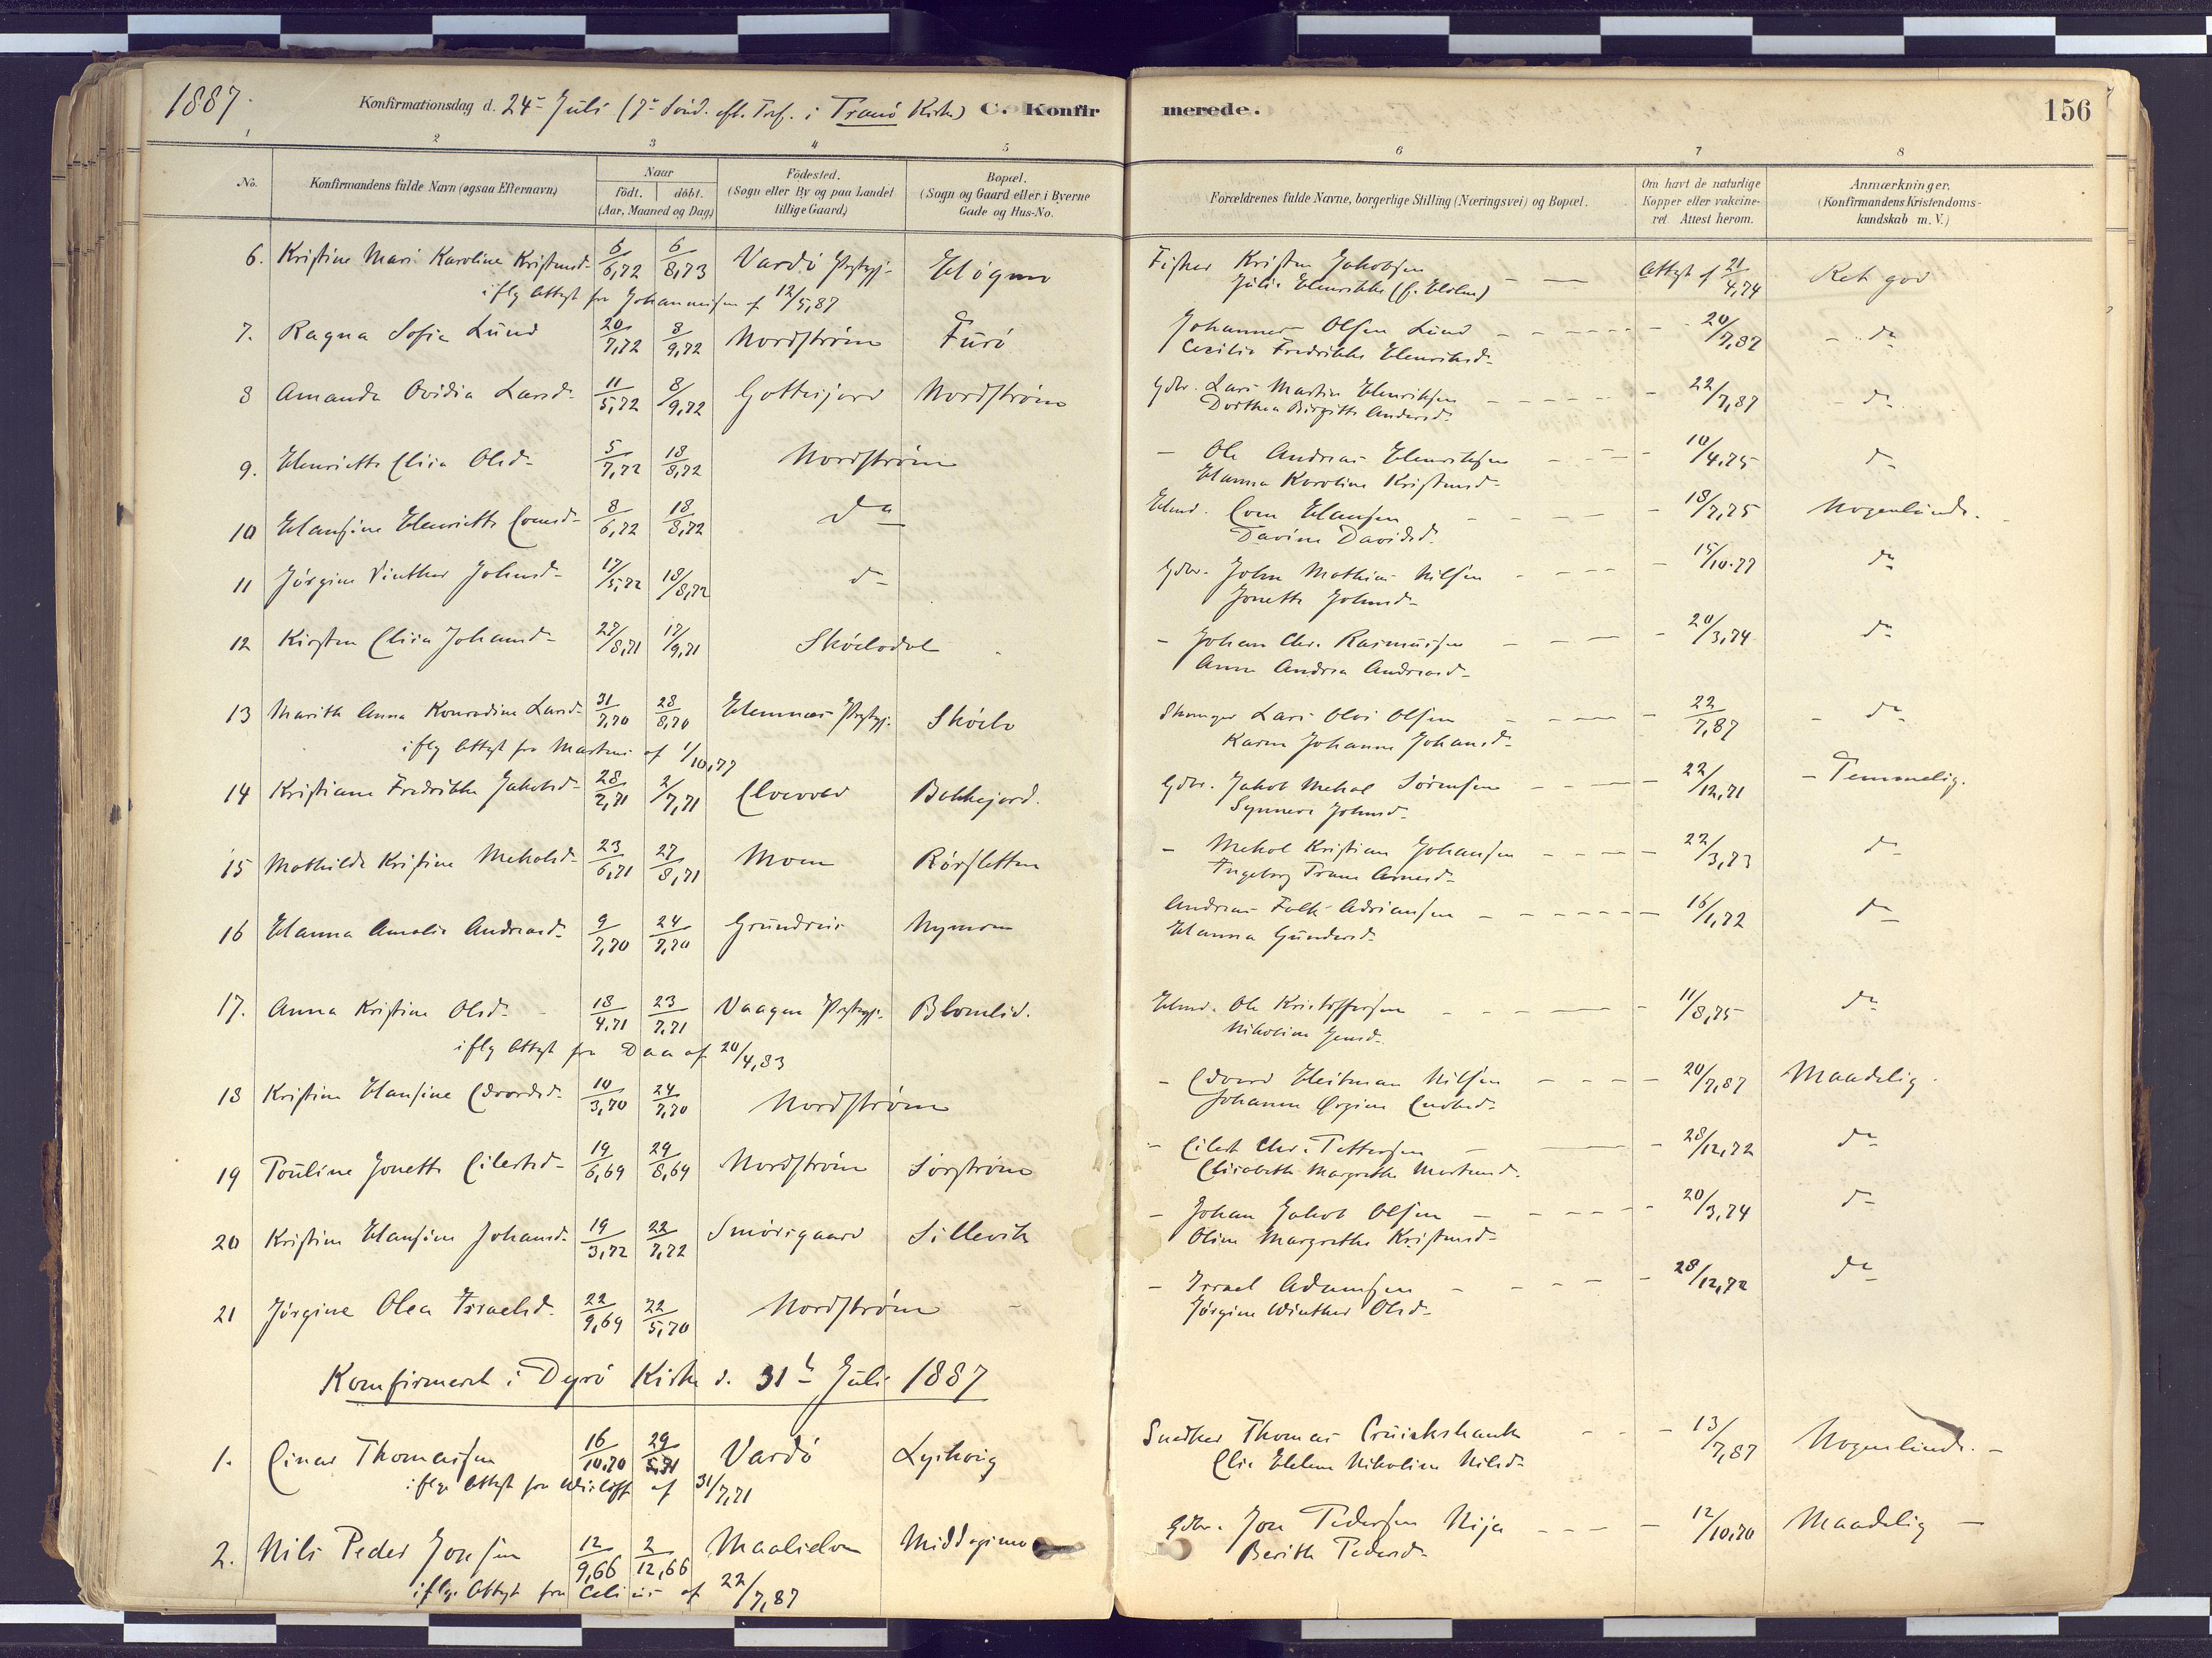 1887.
Konfirmationsdag d. 24de Juli (7de Sönd. eft. Tref. i Tranö Kirke) C. Konfirmerede.
156
1 2 3 4 5 6 7 8
No.
Konfirmandens fulde Navn (ogsaa Efternavn)
Naar
födt. döbt.
(Aar, Maaned og Dag)
Födested.
(Sogn eller By og paa Landet
tillige Gaard)
Bopæl.
(Sogn og Gaard eller i Byerne
Gade og Hus-No.
Forældrenes fulde Navne, borgerlige Stilling (Næringsvei) og Bopæl.
Om havt de naturlige
Kopper eller vakcine-
ret. Attest herom.
Anmærkninger.
(Konfirmandens Kristendoms-
kundskab m. V.)
6. Kristine Mari Karoline Kristensd. 6/6,72 6/8,73 Vardö Prstgj. Høgmo Fisker Kristen Jakobsen Attest af 21/4,74 Ret god
Julie Henrikke (f. Holm)
iflg Attest fra Johannesen af 12/5,87
7. Ragna Sofie Lund 20/7,72 8/9,72 Nordstrøm Furö Johannes Olsen Lund 20/7,87 do
Cecilia Fredrikke Henriksd.
8 Amanda Ovidia Larsd. 11/5,72 8/9,72 Gottesjord Nordstrøm Gdbr. Lars Martin Henriksen 22/7,87 do
Dorthea Birgitte Andersd.
9. Henriette Elisa Olsd. 5/7,72 18/8,72 Nordstrøm - Ole Andreas Henriksen 10/4,75 do
Hanna Karoline Kristensd.
10 Hansine Henriette Conesd. 8/6,72 18/8,72 do Hmd. Cone Hansen 18/7,75 Nogenlunde.
Davine Davidsd.
11 Jörgine Vinther Johnsd. 17/5,72 18/8,72 do Gdbr. John Mathias Nilsen 15/10.77 do
Jonette Johnsd.
12 Kirsten Elisa Johansd. 27/8,71 17/9,71 Skövlodal - Johan Chr. Rasmussen 20/3,74 do
Anne Andrea Andreasd.
13 Marith Anna Konradine Larsd. 31/7,70 28/8,70 Hemnæs Prstgj. Skövlo Lars Olai Olsen 22/7,87 do
Karen Johanne Johansd.
iflg Attest fra Martens af 1/10,77
14 Kristiane Fredrikke Jakobsd. 28/2,71 2/7,71 Elvevold Bokkejord. Gdbr. Jakob Mekal Sörensen 22/12,71 - Temmelig.
Synnere Johnsd.
15 Mathilde Kristine Mekalsd. 23/6,71 27/8,71 Moen Rörsletten - Mekal Kristian Johansen 22/3,73 do
Ingeborg Trane Arnesd.
16 Hanna Amalie Andreasd. 9/7,70 24/7,70 Grundreis Nymoen Andreas Falk Adriansen 16/1,72 do
Hanna Gundersd.
17. Anna Kristine Olsd. 18/4,71 23/7,71 Vaagen Prstgj. Blomlid. Hmd. Ole Kristoffersen 11/8,75 do
Nikoline Jensd.
iflg Attest fra Daa af 20/4,83
18 Kristine Hansine Edvardsd. 10/3,70 24/7,70 Nordstrøm - Edvard Heitman Nilsen 20/7,87 Maadelig.
Johanne Ørgine
19 Pouline Jonette Eilertsd. 19/6,69 29/8,69 Nordstrøm Sørstrøm - Eilert Chr. Pettersen 28/12,72 do
Elisabeth Margrethe Mortensd.
20 Kristine Hansine Johansd. 19/3,72 22/7,72 Smörsgaard Sillevik - Johan Jakob Olsen 20/3,74 do
Oline Margrethe Kristensd.
21 Jörgine Olea Israelsd. 22/9,69 22/5,70 Nordstrøm - Israel Adamsen 28/12,72 do
Jörgine Winther Olsd.
Konfirmeret i Dyrö Kirke d. 31te Juli 1887
1. Einar Thomassen 16/10,70 29/5,71 Vardö Lysbvig Snedker Thomas Cruickshank 13/7,87 Nogenlunde.
Elie Helene Nikoline Nilsd.
iflge Attest fra Wisløff af 31/7,71
2. Nils Peder Jonsen 12/9,66 2/12,66 Maalselven Middagsmo Gdbr. Jon Pedersen Nija 12/10,70 Maadelig
Berith Pedersd.
iflge Attest fra af 22/7,87